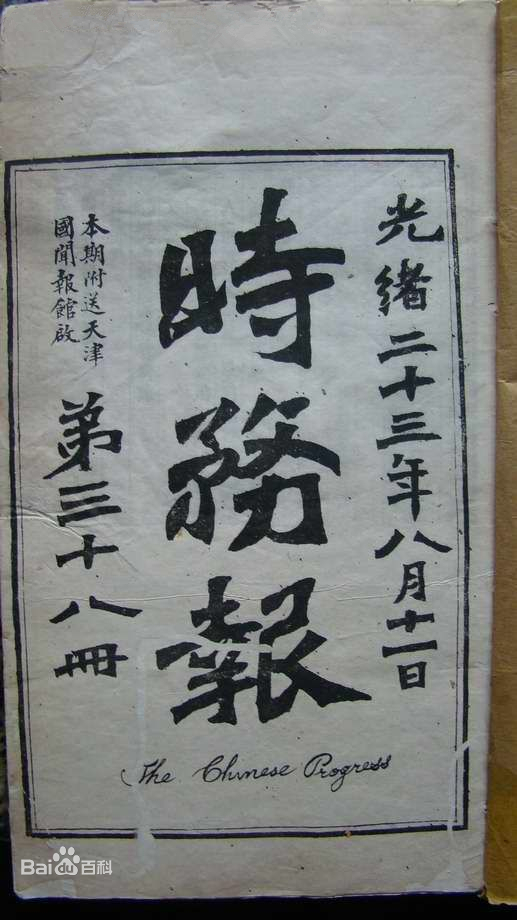 光緒二十三年八月十一日
時務報
本期附送天津
國聞報館啟
第三十八冊
The Chinese Progress
Bai百科